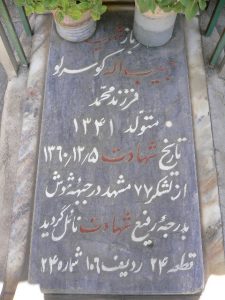 حبیب اله کوسه لو
فرزند محمد
متولد ۱۳۴۱
تاریخ شهادت ۱۳۶۰/۱۲/۵
از لشکر ۷۷ مشهد در جبهه شوش
بدرجه رفیع شهادت نائل گردید
قطعه ۲۴ ردیف ۱۰۶ شماره ۲۴